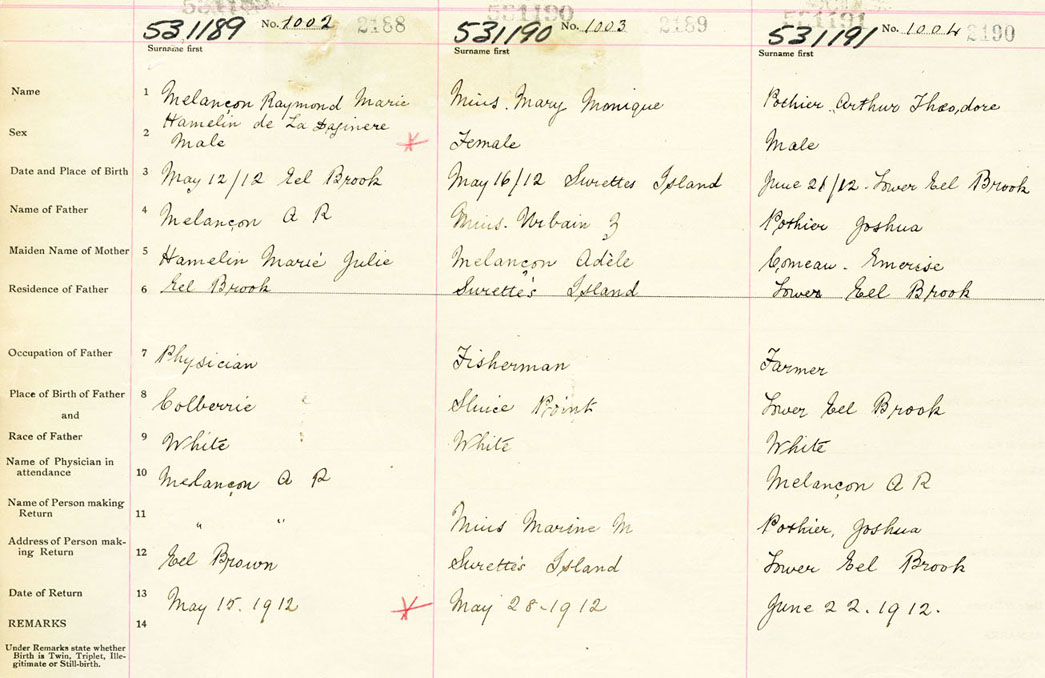 531189 No. 1002 2188 531190 No. 1003 2189 531191 No. 1004 2190
Surname first Surname first Surname first
Name 1 Melançon Raymond Marie Mius. Mary Monique Pothier Arthur Theodore
Hamelin de La
Sex 2 Male Female Male
Date and Place of Birth 3 May 12/12 Eel Brook May 16/12 Surettes Island June 21/12. Lower Eel Brook
Name of Father 4 Melançon A R Mius. Urbain Z Pothier Joshua
Maiden Name of Mother 5 Hamelin Marie Julie Melançon Adèle Comeau. Emerise
Residence of Father 6 Eel Brook Surette's Island Lower Eel Brook
Occupation of Father 7 Physician Fisherman Farmer
Place of Birth of Father 8 Colberrie Sluice Point Lower Eel Brook
and
Race of Father 9 White White White
Name of Physician in
attendance 10 Melançon A R Melançon A R
Name of Person making
Return 11 " " Mius Marine M Pothier, Joshua
Address of Person mak-
ing Return 12 Eel Brown Surette's Island Lower Eel Brook
Date of Return 13 May 15. 1912 May 28-1912 June 22. 1912.
REMARKS 14
Under Remarks state whether
Birth is Twin, Triplet, Ille-
gitimate or Still-birth.